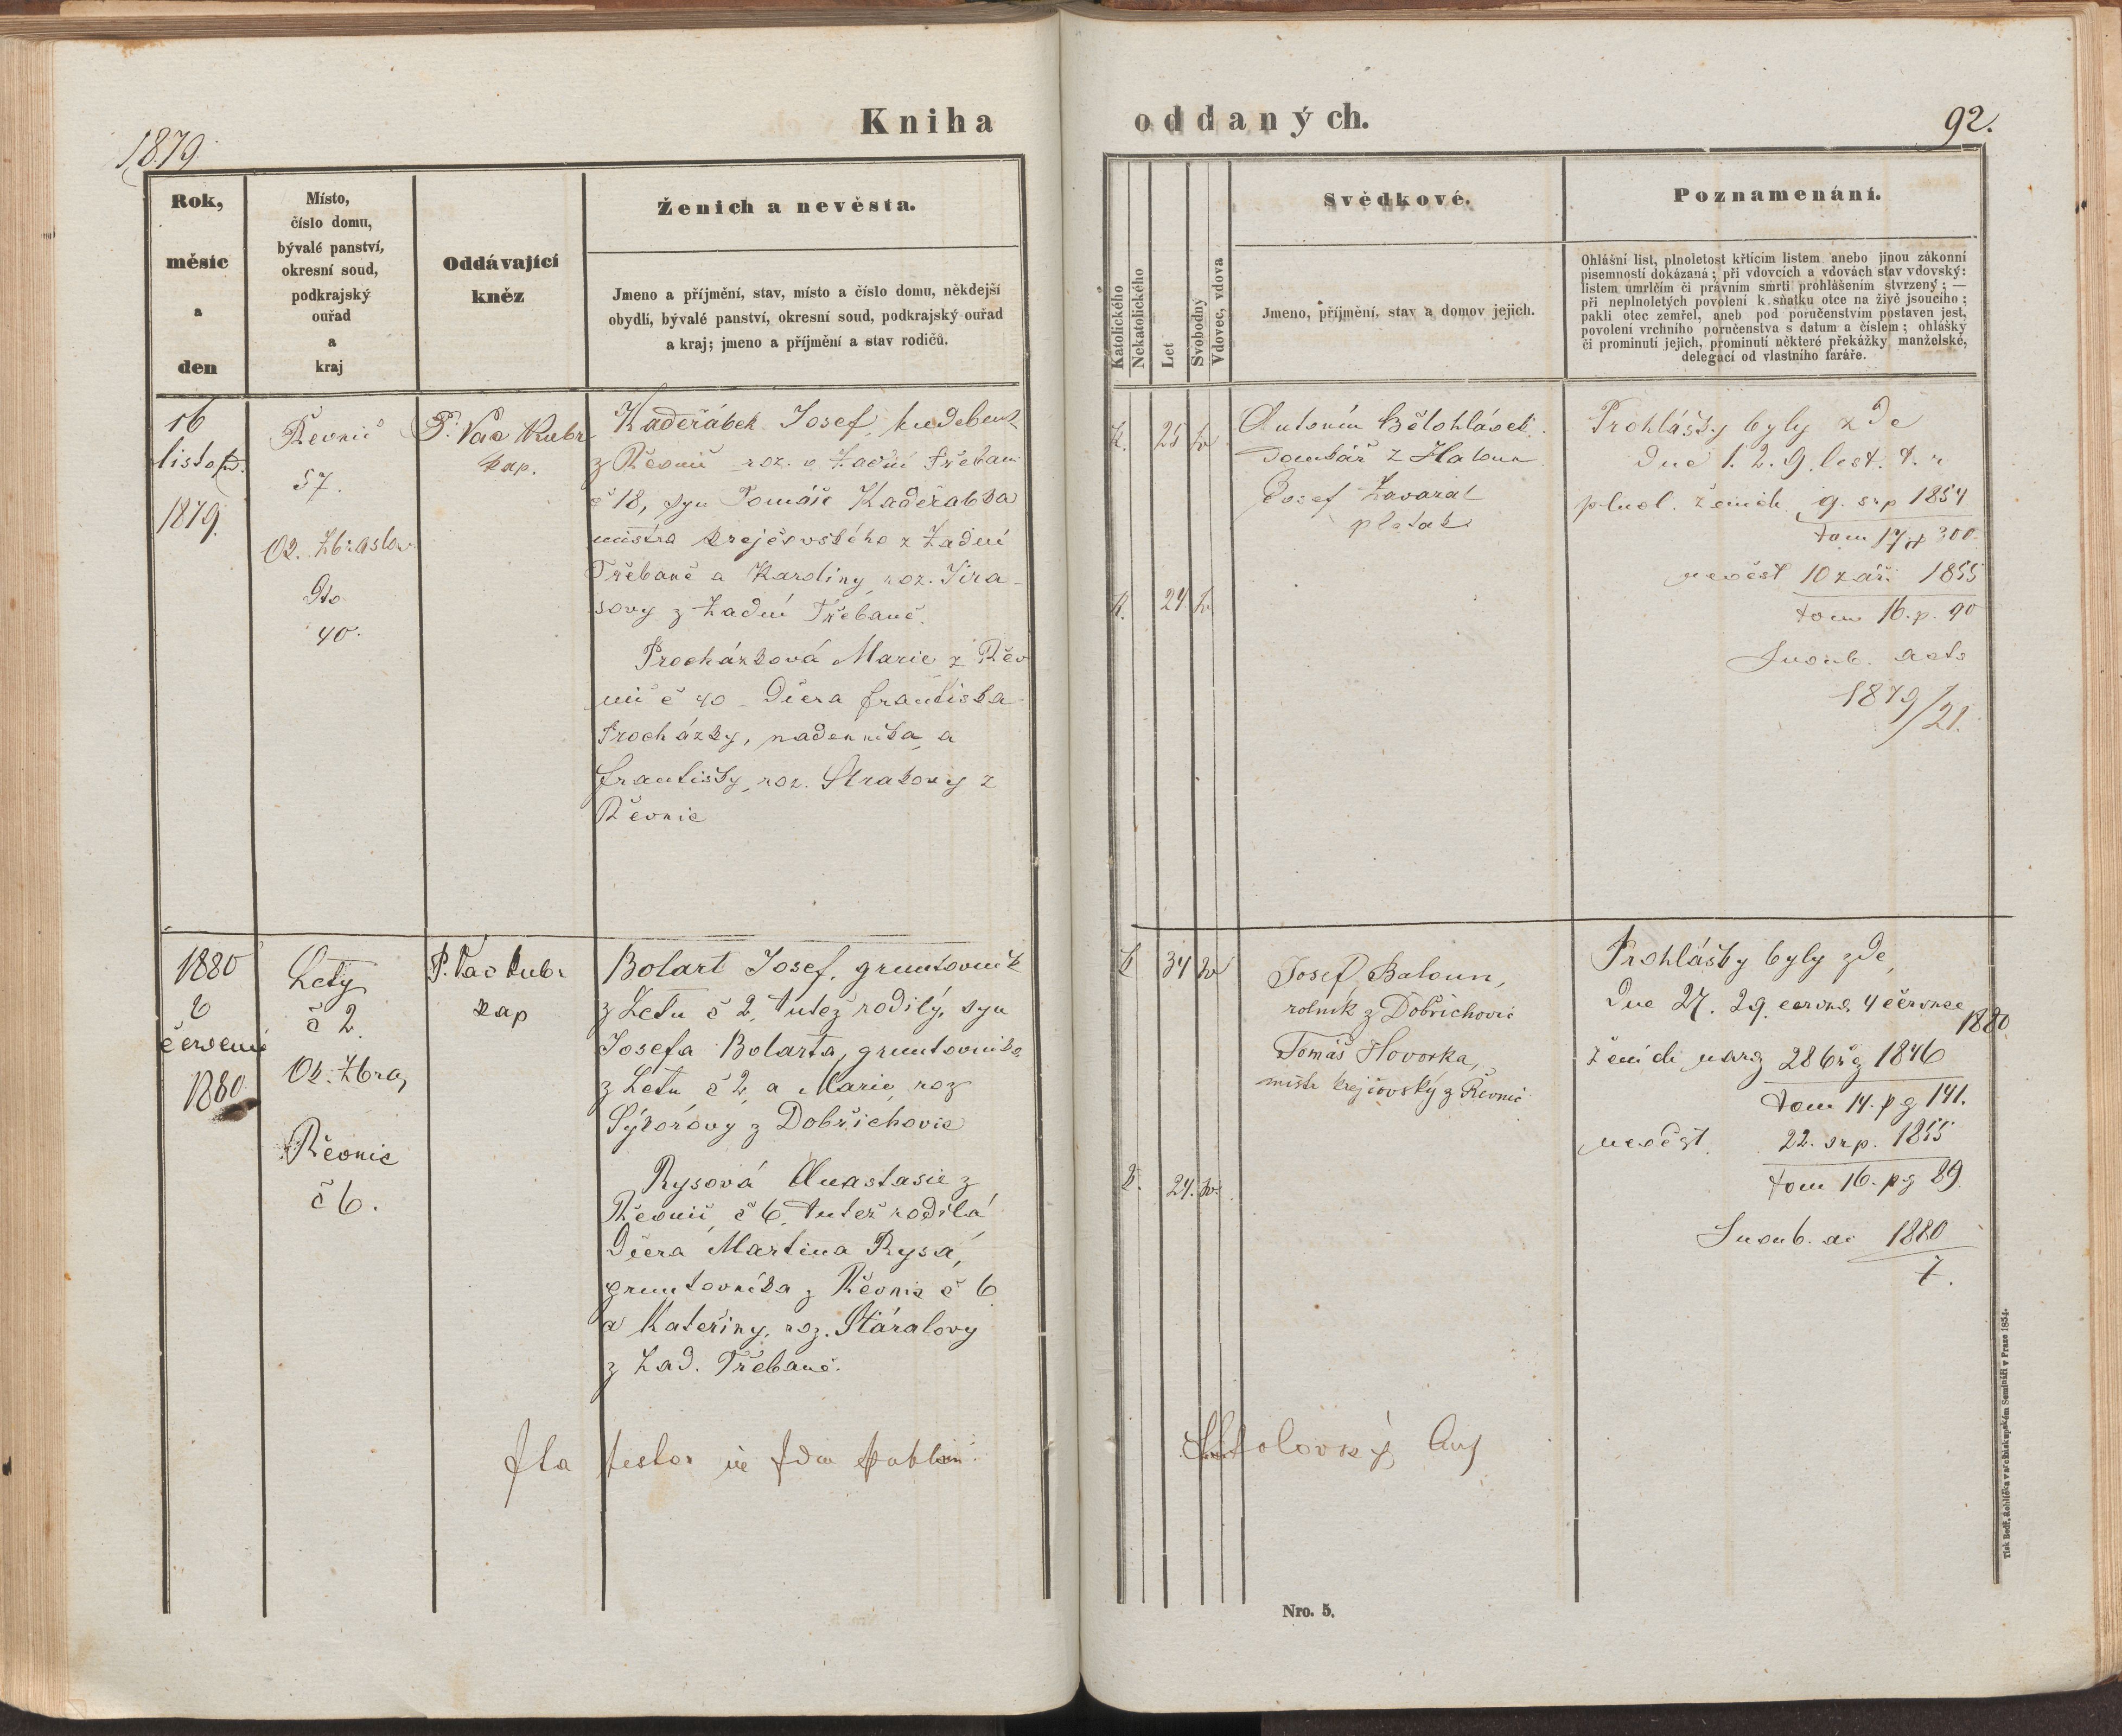 Kniha oddaných.
1879.
92.
Rok,
měsíc
a
den
Místo,
číslo domu,
bývalé panství,
okresní soud,
podkrajský
ouřad
a
kraj
Oddávající
kněz
Ženich a nevěsta.
Jmeno a příjmění, stav, místo a číslo domu, někdejší
obydlí, bývalé panství, okresní soud, podkrajský ouřad
a kraj; jmeno a příjmění a stav rodičů.
Katolického
Nekatolického
Let
Svobodný
Vdovec, vdova
Svědkové.
Jmeno, příjmění, stav a domov jejich.
Poznamenání.
Ohlášní list, plnoletost křtícím listem anebo jinou zákonní
písemností dokázaná; při vdovcích a vdovách stav vdovský:
listem umrlčím či právním smrti prohlášením stvrzený; —
při neplnoletých povolení k sňatku otce na živě jsoucího;
pakli otec zemřel, aneb pod poručenstvím postaven jest,
povolení vrchního poručenstva s datum a číslem; ohlášky
či prominutí jejich, prominutí některé překážky manželské,
delegací od vlastního faráře.
16
listop.
1879.
Řevnic
57.
O2. Zbraslav
40.
P. Vac Kubr
kap.
Kadeřábek Josef, hudebník
z Řevnic roz. v Zadní Třebani
č 18, syn Tomáše Kadeřábka
mistra krejčovského z Zadní
Třebaně a Karoliny, roz. Jira-
sovy z Zadní Třebaně.
Procházková Marie z Řev
nic č 40 - Dcera Františka
Procházky, nádenníka a
Františky, roz. Strakovy z
Řevnic
K. 25
K. 24
Antonín Bělohlávek
z Haloun
Josef Zavaral
Prohlášky byly zde
dne 1. 2. 9. list. t. r.
plnol. ženich 9. srp 1854
tom 17 300.
nevěst 10 září 1855
tom 16. p. 90
Snoub. acta
1879/21.
1880
6
červenc
1880
Lety
č 2
Ok. Zbra,
Řevnic
č 6.
P. Vac Kubr
kap
Bolart Josef, gruntovník
z Letu č 2, tutéž rodilý, syn
Josefa Bolarta, gruntovníka
z Letu č 2, a Marie, roz
Sýkorovy z Dobřichovic
Rysová Anastasie z
Řevnic č 6, tutéž rodilá
Dcera Martina Rysá,
gruntovníka z Řevnic č 6
a Kateřiny, roz. Stáralovy
z Zad. Třebaně.
K 34
K. 24.
Josef Baloun,
rolník z Dobřichovic
Tomáš Hovorka,
mistr krejčovský z Řevnic
Prohlášky byly zde,
dne 27. 29. června, 4 července
1880
ženich narz 28 břz 1846
tom 14. pg 141.
nevěst. 22. srp. 1855
tom 16. pg 89
Snoub. ac 1880
7.
Nro. 5.